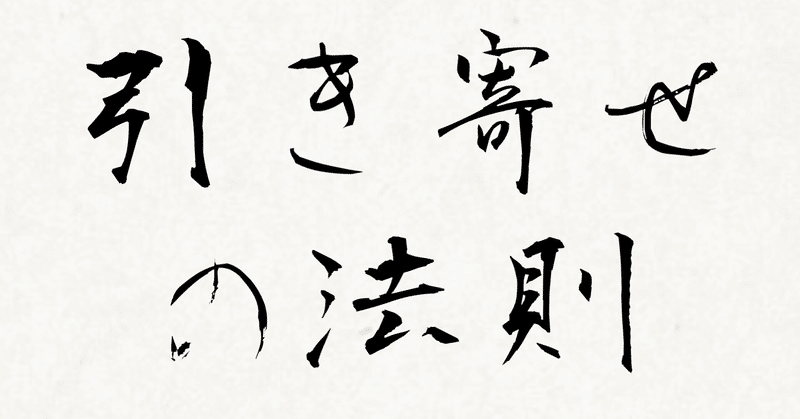 引き寄せ
の法則